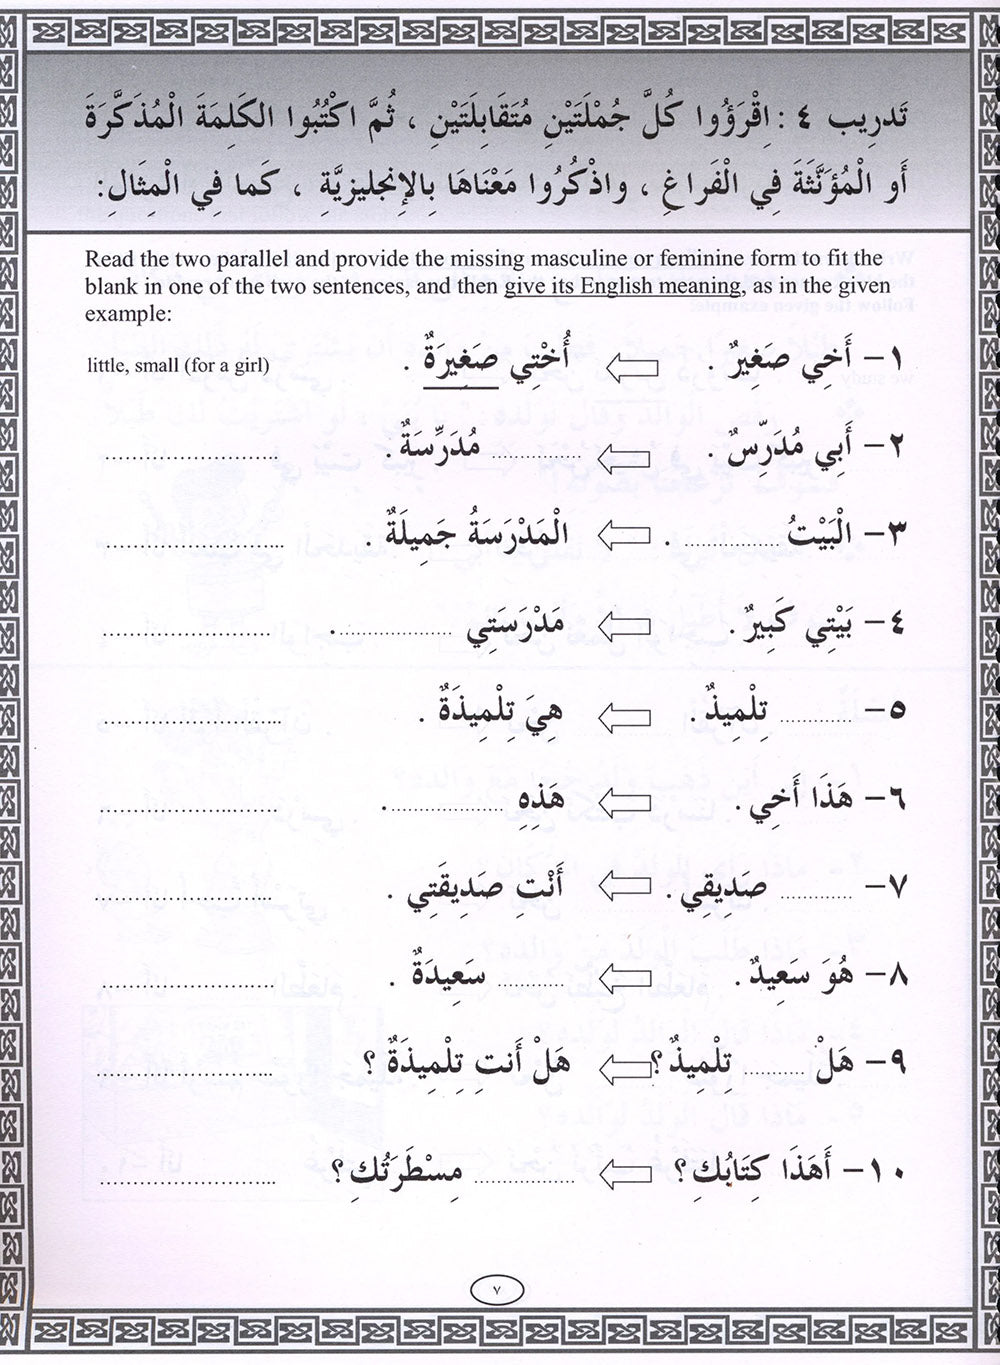 تَدرِيب ٤ : اِقْرَؤُوا كُلَّ جُمْلَتَيْنِ مُتَقَابِلَتَيْنِ ، ثُمَّ اكْتُبُوا الكَلِمَةَ الْمُذَكَّرَةَ
أَو الْمُؤَنَّثَةَ فِي الْفَراغِ ، واذْكُرُوا مَعْنَاهَا بِالإِنجليزيَّة ، كَما فِي الْمثَالِ:
Read the two parallel and provide the missing masculine or feminine form to fit the
blank in one of the two sentences, and then give its English meaning, as in the given
example:
١- أَخِي صَغِيرٌ . ⇦ أُخْتِي صَغِيرَةٌ . little, small (for a girl)
٢- أَبِي مُدَرِّسٌ . ⇦ ............... مُدَرِّسَةٌ . ..............................
٣- الْبَيْتُ ............... . ⇦ الْمَدْرَسَةُ جَمِيلَةٌ . ..............................
٤- بَيْتِي كَبِيرٌ . ⇦ مَدْرَسَتِي ............... . ..............................
٥- ............ تِلْمِيذٌ . ⇦ هِيَ تِلْمِيذَةٌ . ..............................
٦- هَذَا أَخِي . ⇦ هَذِهِ ............... . ..............................
٧- ............ صَدِيقِي . ⇦ أَنْتِ صَدِيقَتِي . ..............................
٨- هُوَ سَعِيدٌ . ⇦ ............... سَعِيدَةٌ . ..............................
٩- هَلْ ............ تِلْمِيذٌ ؟ ⇦ هَلْ أَنتِ تِلْمِيذَةٌ ؟ ..............................
١٠- أَهَذَا كِتَابُكِ ؟ ⇦ ............... مِسْطَرَتُكِ ؟ ..............................
٧